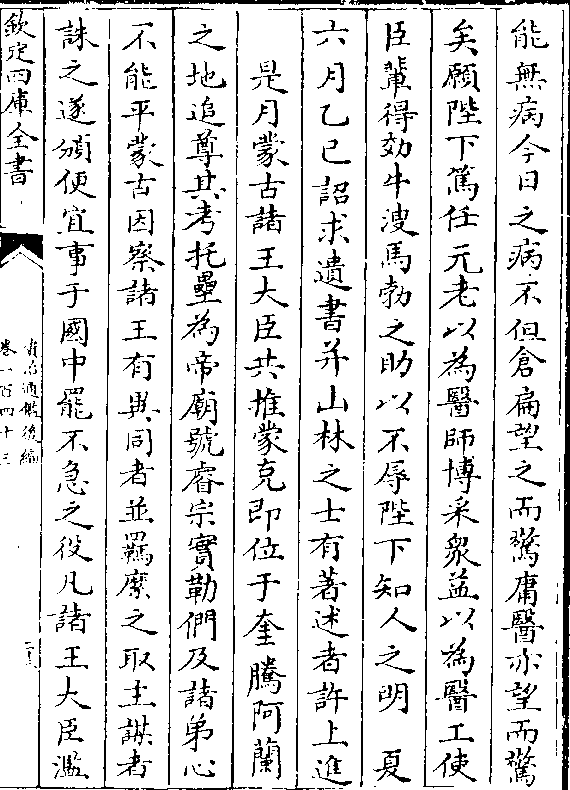 能無病今日之病不但倉扁望之而驚庸醫亦望而驚
矣願陛下篤任元老以為醫師博采衆益以為醫工使
臣輩得効牛溲馬勃之助以不辱陛下知人之明　夏
六月乙巳詔求遺書并山林之士有著述者許上進
是月蒙古諸王大臣共推蒙克即位于奎騰阿蘭
之地追尊其考托壘為帝廟號睿宗實勒們及諸弟心
不能平蒙古因察諸王有異同者並羈縻之取主謀者
誅之遂頒便宜事于國中罷不急之役凡諸王大臣濫
欽定四庫全書
資治通鑑後編
卷一百四十三